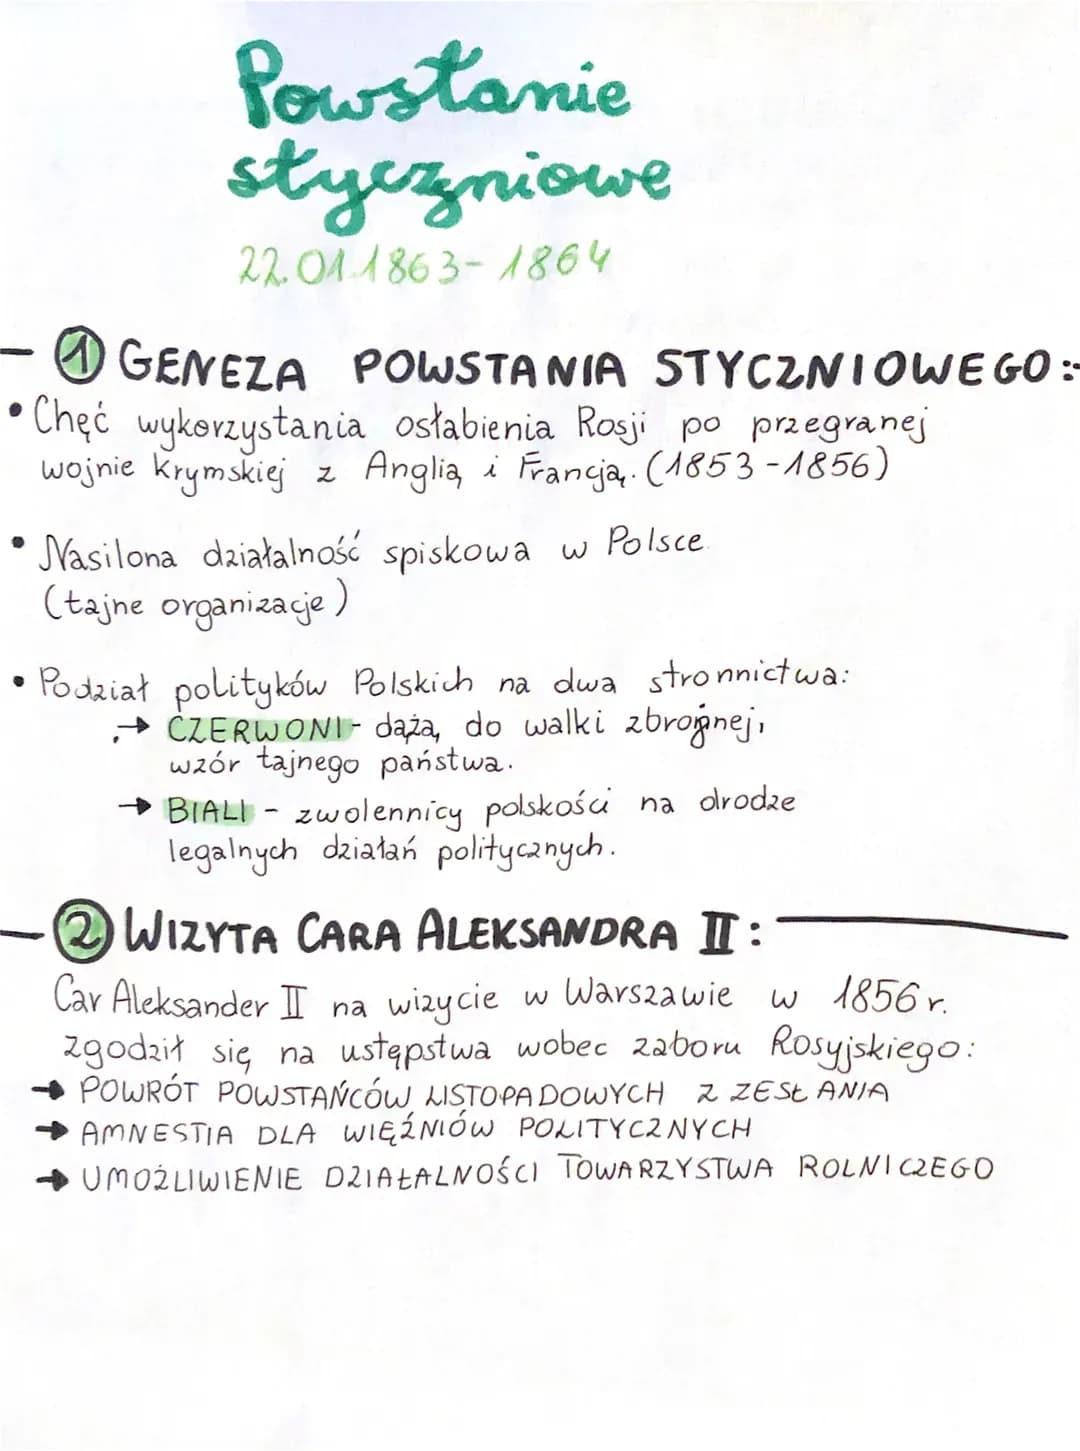 Powstanie
styczniowe
22.01.1863-1864
- 1 GENEZA POWSTANIA STYCZNIOWEGO:-
• Chęć wykorzystania osłabienia Rosji po przegranej
wojnie krymskiej z Anglią i Francją. (1853-1856)
• Nasilona działalność spiskowa w Polsce.
(tajne organizacje)
• Podział polityków Polskich na dwa stronnictwa:
→ CZERWONI - dążą do walki zbrojnej,
wzór tajnego państwa.
→ BIALI - zwolennicy polskości na drodze
legalnych działań politycznych.
- 2 WIZYTA CARA ALEKSANDRA II:
Car Aleksander II na wizycie w Warszawie w 1856 r.
zgodził się na ustępstwa wobec zaboru Rosyjskiego:
→ POWRÓT POWSTAŃCÓW LISTOPADOWYCH Z ZESŁANIA
→ AMNESTIA DLA WIĘŹNIÓW POLITYCZNYCH
→ UMOŻLIWIENIE DZIAŁALNOŚCI TOWARZYSTWA ROLNICZEGO